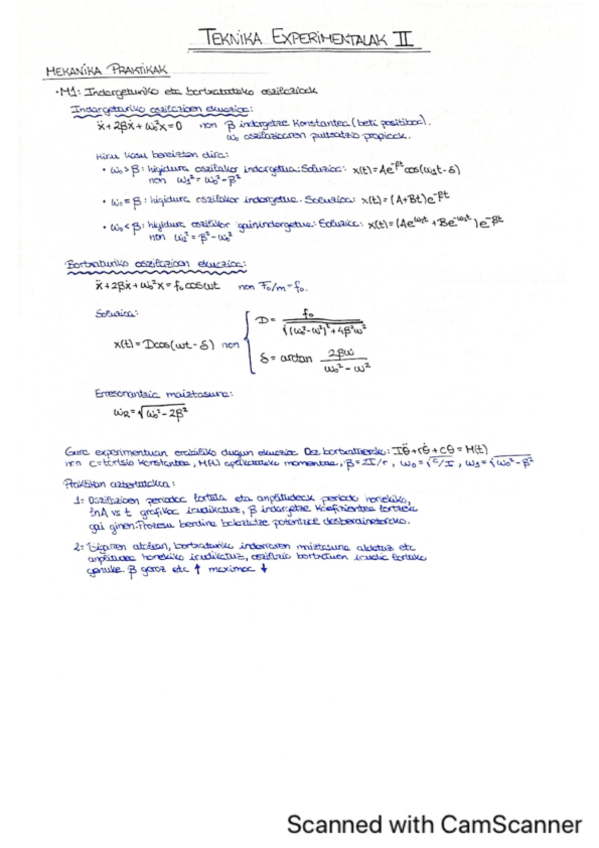 TEKNIKA EXPERIMENTALAK II
MEKANIKA PRAKTIKAK
• M1: Indargeturiko eta bortxatutako oszilazioak
Indargeturiko oszilazioen ekuazioa:
ẍ + 2βẋ + ω₀²x = 0 non β indargetze konstantea (beti positiboa).
ω₀ oszilazioaren pultsatzio propioak.
Hiru kasu bereizten dira:
• ω₀ > β: higidura oszilakor indargetua: Soluzioa: x(t) = Ae^-βt cos(ω₁t - δ)
non ω₁² = ω₀² - β²
• ω₀ = β: higidura oszilakor indargetua. Soluzioa: x(t) = (A + Bt)e^-βt
• ω₀ < β: higidura oszilakor gainindargetua: Soluzioa: x(t) = (Ae^ω₂t + Be^-ω₂t)e^-βt
non ω₂² = β² - ω₀²
Bortxaturiko oszilazioen ekuazioa:
ẍ + 2βẋ + ω₀²x = f₀ cosωt non F₀/m = f₀.
Soluzioa:
x(t) = Dcos(ωt - δ) non
D = f₀ / √((ω₀² - ω²)² + 4β²ω²)
δ = arctan 2βω / (ω₀² - ω²)
Erresonantzia maiztasuna:
ω_R = √(ω₀² - 2β²)
Gure experimentuan erabiliko dugun ekuazioa Osz. bortxatuerako: Iθ̈ + rθ̇ + cθ = M(t)
non c = tortsio konstantea, M(t) aplikatutako momentua, β = 2I/r, ω₀ = √c/I, ω₁ = √(ω₀² - β²)
Praktikan aztertutakoa:
1: Oszilazioen periodoa lortuta eta anplitudeak periodo horiekiko,
lnA vs t grafikoa irudikatuz, β indargetze koefizientea lortzeko
gai ginen. Prozesu berdina balaztatze potentzia desberdinetarako.
2: Bigarren atalean, bortxaturiko indarraren maiztasuna aldatuz eta
anplitudea honekiko irudikatuz, oszilazio bortxatuen irudia lortuko
genuke. β geroz eta ↑ maximoa ↓
Scanned with CamScanner